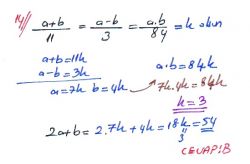 14) a+b/11 = a-b/3 = a.b/84 = k olsun
a+b=11k
a-b=3k
a=7k b=4k
a.b=84k
7k.4k=84k
k=3
2a+b = 2.7k+4k=18k=54
3
CEVAP:B